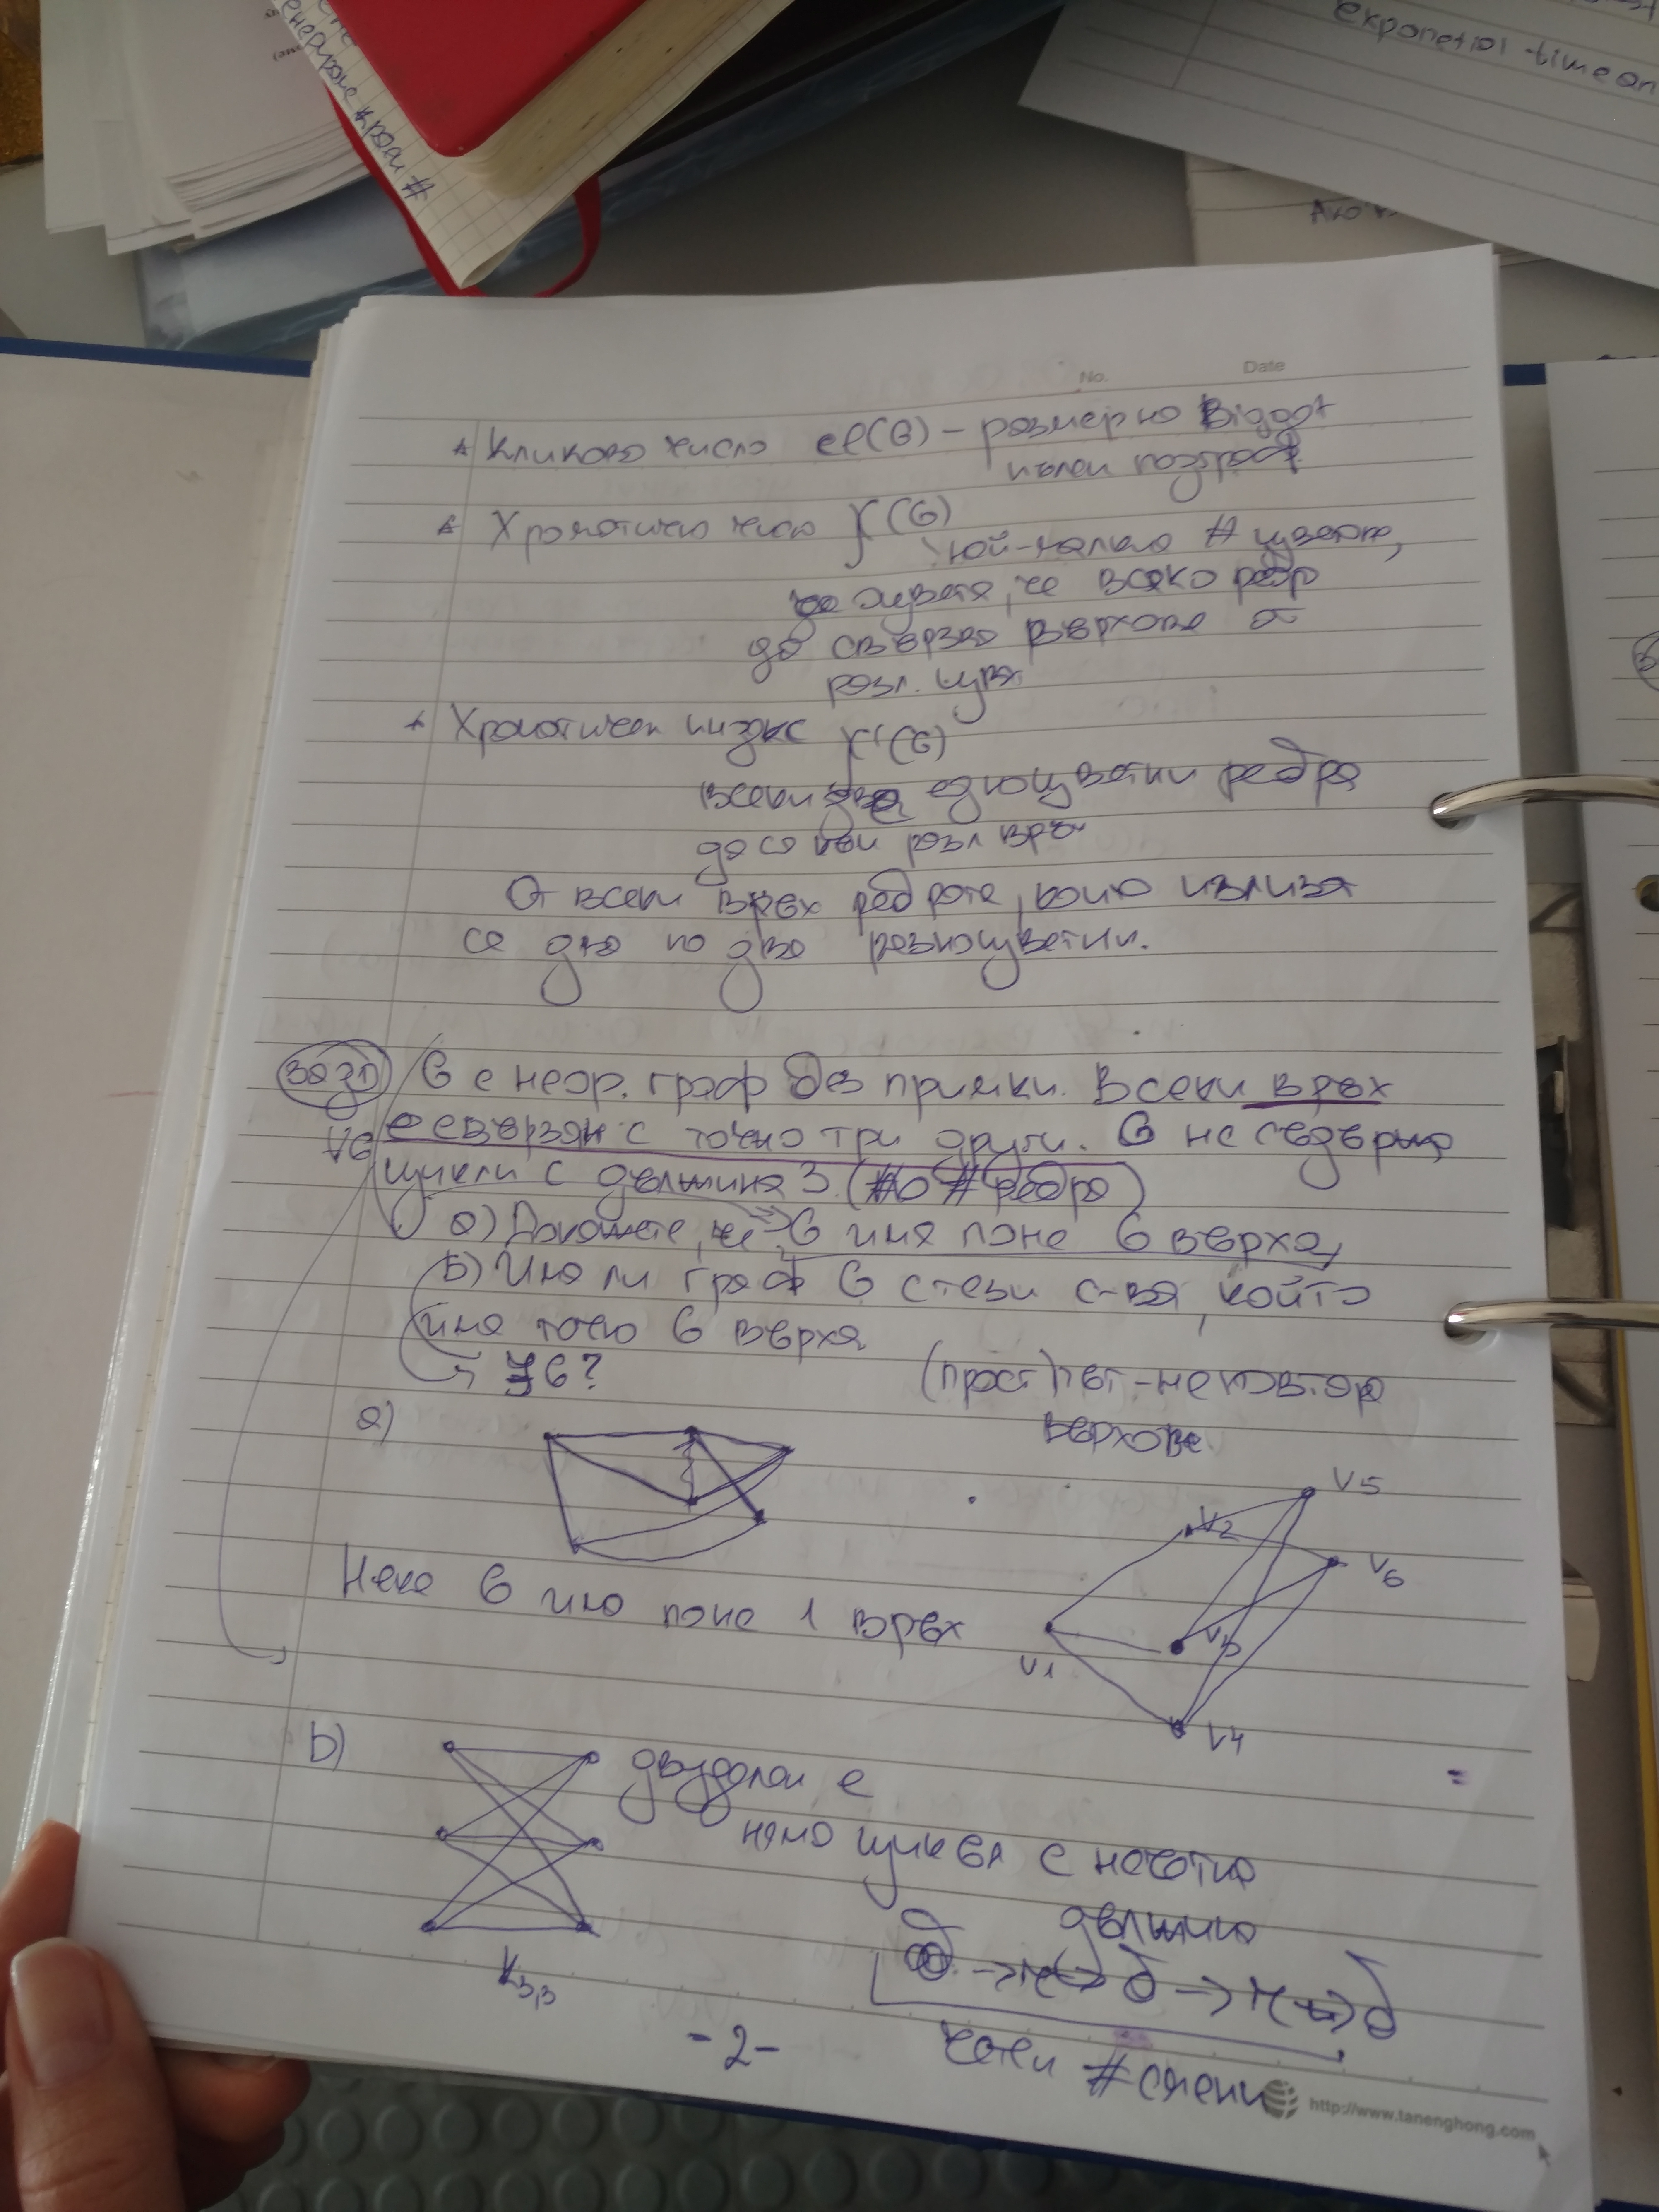 exponetial time an
генериране крои #
Ако
No. Date
* Кликово число cl(G) – размер на Biggest
пълен подграф
* Хроматично число χ(G)
най-малко # цветове,
че всяко ребро
да свързва върхове с
разл. цвят
* Хроматичен индекс χ'(G)
всеки две едноцветни ребра
да са към разл връх
От всеки връх ребрата, които излизат
са две по две разноцветни.
Зад 1) G е неор. граф без примки. Всеки връх
∀G е свързан с точно три други. G не съдържа
цикли с дължина 3. (#о #ребра)
а) Докажете, че G има поне 6 върха,
б) Има ли граф G с тези с-ва, който
има точно 6 върха
∃G? (прост) път - не повтаря
върхове
а)
V5
V2
V6
Нека G има поне 1 връх
V1 V3
V4
b) двуделен е
няма цикъл с нечетна
дължина
K3,3
б → ч → б → ч → б
четен # смени
-2-
http://www.tanenghong.com